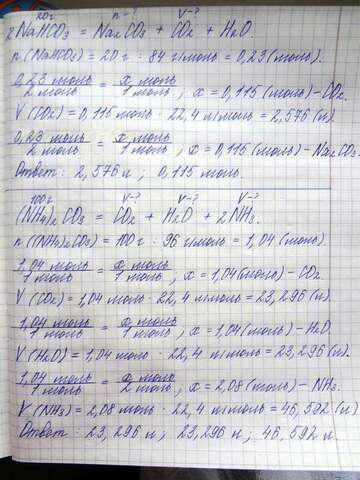 20г n-? V-?
2NaHCO₃ = Na₂CO₃ + CO₂ + H₂O.
n(NaHCO₃) = 20 г : 84 г/моль = 0,23 (моль).
0,23 моль / 2 моль = x моль / 1 моль ; x = 0,115 (моль) - CO₂.
V(CO₂) = 0,115 моль · 22,4 л/моль = 2,576 (л)
0,23 моль / 2 моль = x моль / 1 моль ; x = 0,115 (моль) - Na₂CO₃.
Ответ: 2,576 л ; 0,115 моль.
100г V-? V-? V-?
(NH₄)₂CO₃ = CO₂ + H₂O + 2NH₃.
n((NH₄)₂CO₃) = 100 г : 96 г/моль = 1,04 (моль).
1,04 моль / 1 моль = x моль / 1 моль ; x = 1,04 (моль) - CO₂.
V(CO₂) = 1,04 моль · 22,4 л/моль = 23,296 (л).
1,04 моль / 1 моль = x моль / 1 моль ; x = 1,04 (моль) - H₂O.
V(H₂O) = 1,04 моль · 22,4 л/моль = 23,296 (л).
1,04 моль / 1 моль = x моль / 2 моль ; x = 2,08 (моль) - NH₃.
V(NH₃) = 2,08 моль · 22,4 л/моль = 46,592 (л)
Ответ: 23,296 л ; 23,296 л ; 46,592 л.